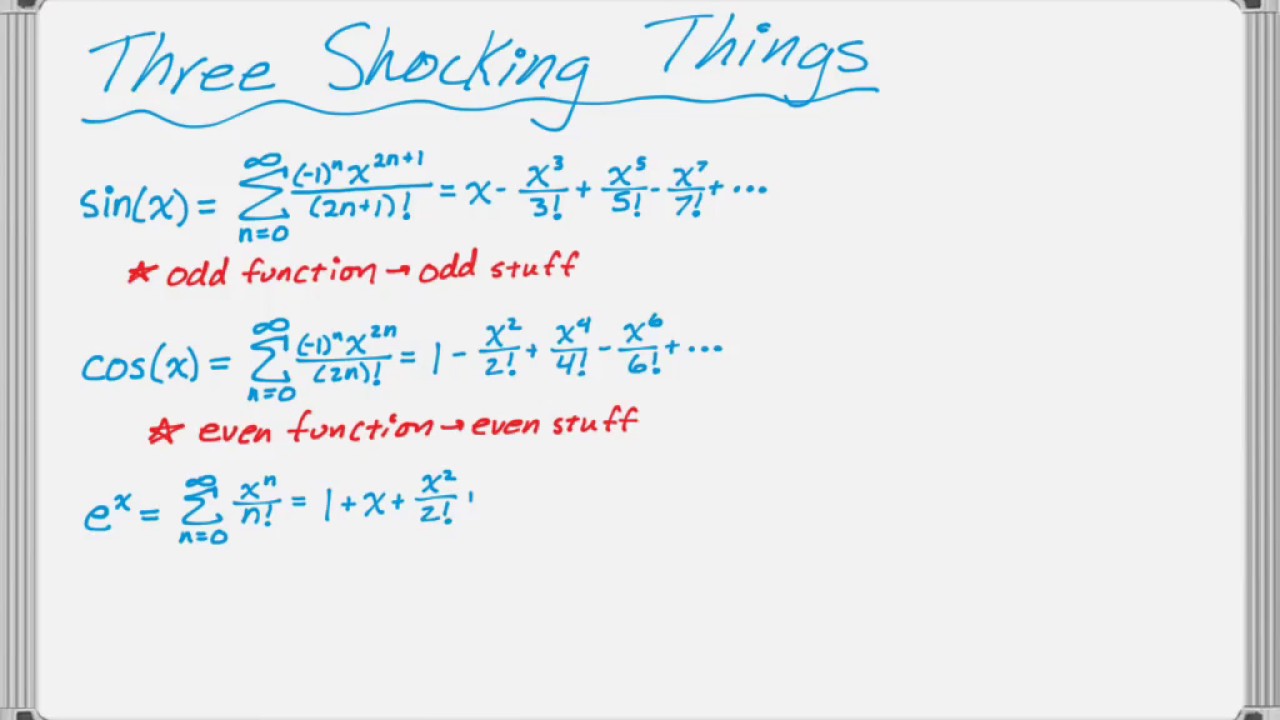 Three Shocking Things
sin(x) = ∑_{n=0}^{∞} \frac{(-1)^n x^{2n+1}}{(2n+1)!} = x - \frac{x^3}{3!} + \frac{x^5}{5!} - \frac{x^7}{7!} + ...
★ odd function → odd stuff
cos(x) = ∑_{n=0}^{∞} \frac{(-1)^n x^{2n}}{(2n)!} = 1 - \frac{x^2}{2!} + \frac{x^4}{4!} - \frac{x^6}{6!} + ...
★ even function → even stuff
e^x = ∑_{n=0}^{∞} \frac{x^n}{n!} = 1 + x + \frac{x^2}{2!}